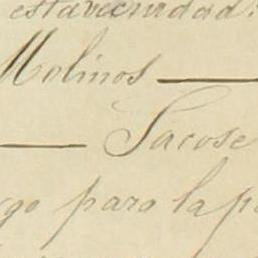 estavecindad.
Molinos
Sacose
go para la p